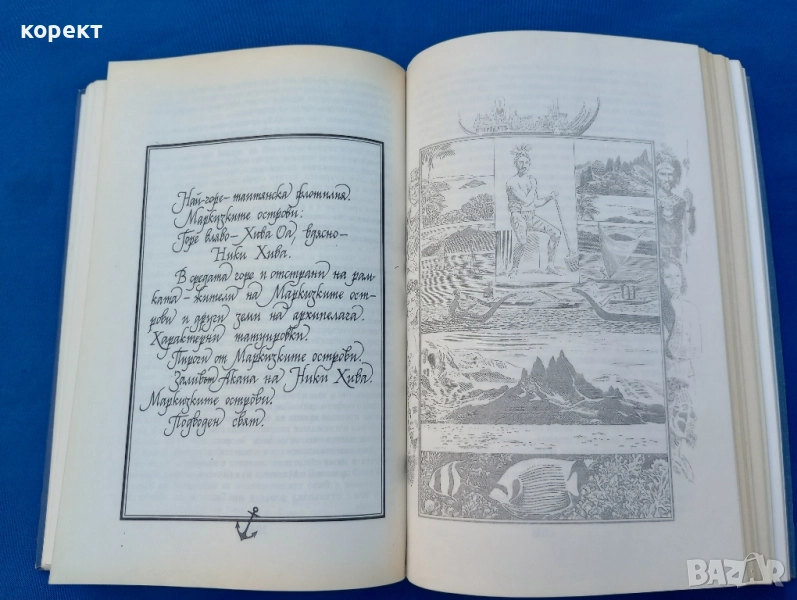 корект
Най-горе - таитянска флотилия.
Маркизките острови:
Горе вляво - Хива Оа, вдясно -
Ники Хива.
В средата горе и отстрани на рам-
ката - жители на Маркизките ост-
рови и други земи на архипелага.
Характерни татуировки.
Пироги от Маркизките острови.
Заливът Акапа на Ники Хива.
Маркизките острови.
Подводен свят.
BAZAR